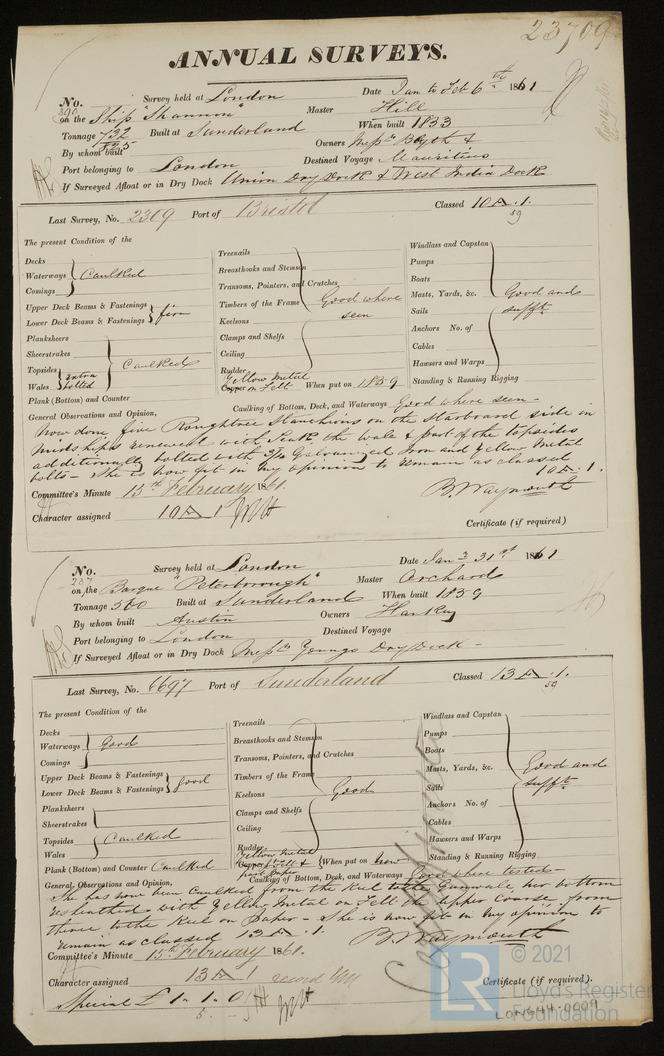 23709
ANNUAL SURVEYS.
No. 390 Survey held at London Date Jan to Feb 6th 1861
on the Ship "Shannon" Master Hill
Tonnage 732 825 Built at Sunderland When built 1833
By whom built Owners Messrs Blyth &
Port belonging to London Destined Voyage Mauritius
If Surveyed Afloat or in Dry Dock Union Dry Dock & West India Dock
Last Survey, No. 2309 Port of Bristol Classed 10 A. 1.
59
The present Condition of the
Decks
Waterways Caulked
Comings
Upper Deck Beams & Fastenings
Lower Deck Beams & Fastenings firm
Planksheers
Sheerstrakes
Topsides Caulked
Wales extra bolted
Plank (Bottom) and Counter
Treenails
Breasthooks and Stemson
Transoms, Pointers, and Crutches
Timbers of the Frame Good where seen
Keelsons
Clamps and Shelfs
Ceiling
Rudder
Yellow Metal
Copper on Felt When put on 1859
Windlass and Capstan
Pumps
Boats
Masts, Yards, &c. Good and
Sails sufft
Anchors No. of
Cables
Hawsers and Warps
Standing & Running Rigging
Caulking of Bottom, Deck, and Waterways Good where seen -
General Observations and Opinion,
Now done five Roughtree Stanchions on the Starboard side in
midships renewed with Teak the wale & part of the topsides
additionally bolted with Galvanized Iron and Yellow Metal
bolts - She is now fit in my opinion to remain as classed
10 A. 1.
Committee's Minute 15th February 1861. B. Waymouth
Character assigned 10 A 1
Certificate (if required)
No. 287 Survey held at London Date Jan 3 31st 1861
on the Barque "Peterborough" Master Orchard
Tonnage 560 Built at Sunderland When built 1859
By whom built Austin Owners Hankey
Port belonging to London Destined Voyage
If Surveyed Afloat or in Dry Dock Messrs Youngs Dry Dock -
Last Survey, No. 6697 Port of Sunderland Classed 13 A. 1.
59
The present Condition of the
Decks
Waterways Good
Comings
Upper Deck Beams & Fastenings
Lower Deck Beams & Fastenings good
Planksheers
Sheerstrakes
Topsides Caulked
Wales
Plank (Bottom) and Counter Caulked
Treenails
Breasthooks and Stemson
Transoms, Pointers, and Crutches
Timbers of the Frame
Keelsons Good
Clamps and Shelfs
Ceiling
Rudder
Yellow Metal
Copper felt & When put on now
part paper
Windlass and Capstan
Pumps
Boats
Masts, Yards, &c. Good and
Sails sufft
Anchors No. of
Cables
Hawsers and Warps
Standing & Running Rigging
Caulking of Bottom, Deck, and Waterways Good where tested -
General Observations and Opinion,
She has now been Caulked from the Keel to the Gunwale, her bottom
resheathed with Yellow Metal on Felt the upper course, from
thence to the Keel on Paper - She is now fit in my opinion to
remain as classed 13 A. 1. B. Waymouth
Committee's Minute 15th February 1861.
Character assigned 13 A 1
Special £1.1.0
Certificate (if required).
LR
© 2021
Lloyd's Register
Foundation
LON644-0009